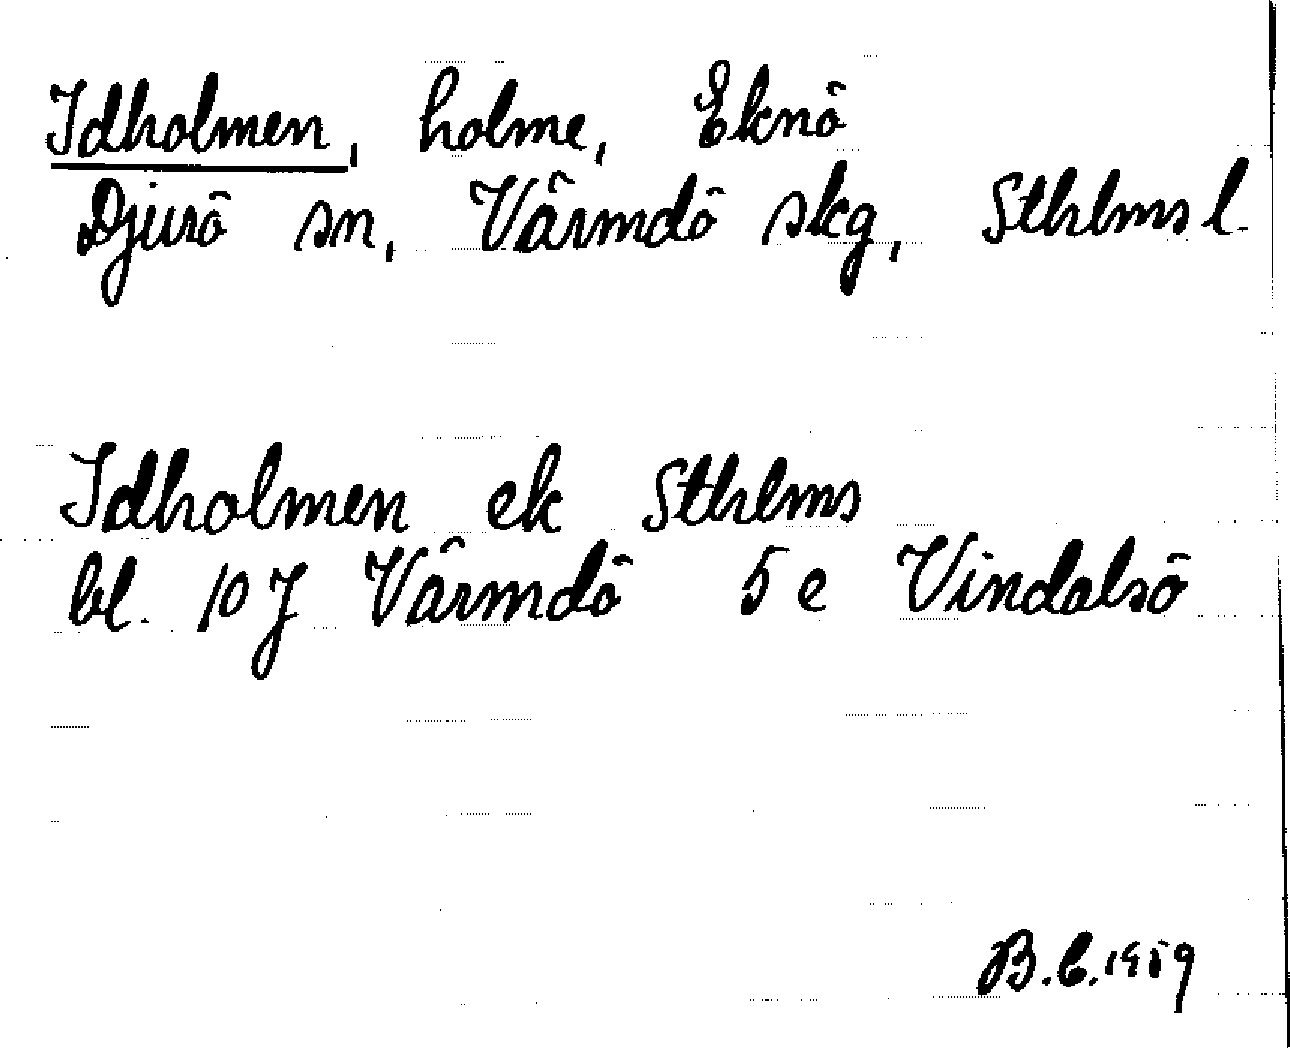 Idholmen, holme, Eknö
Djurö sn, Värmdö skg, Sthlms l.
Idholmen ek Sthlms
bl. 10 J Värmdö 5 e Vindalsö
B.C. 1959